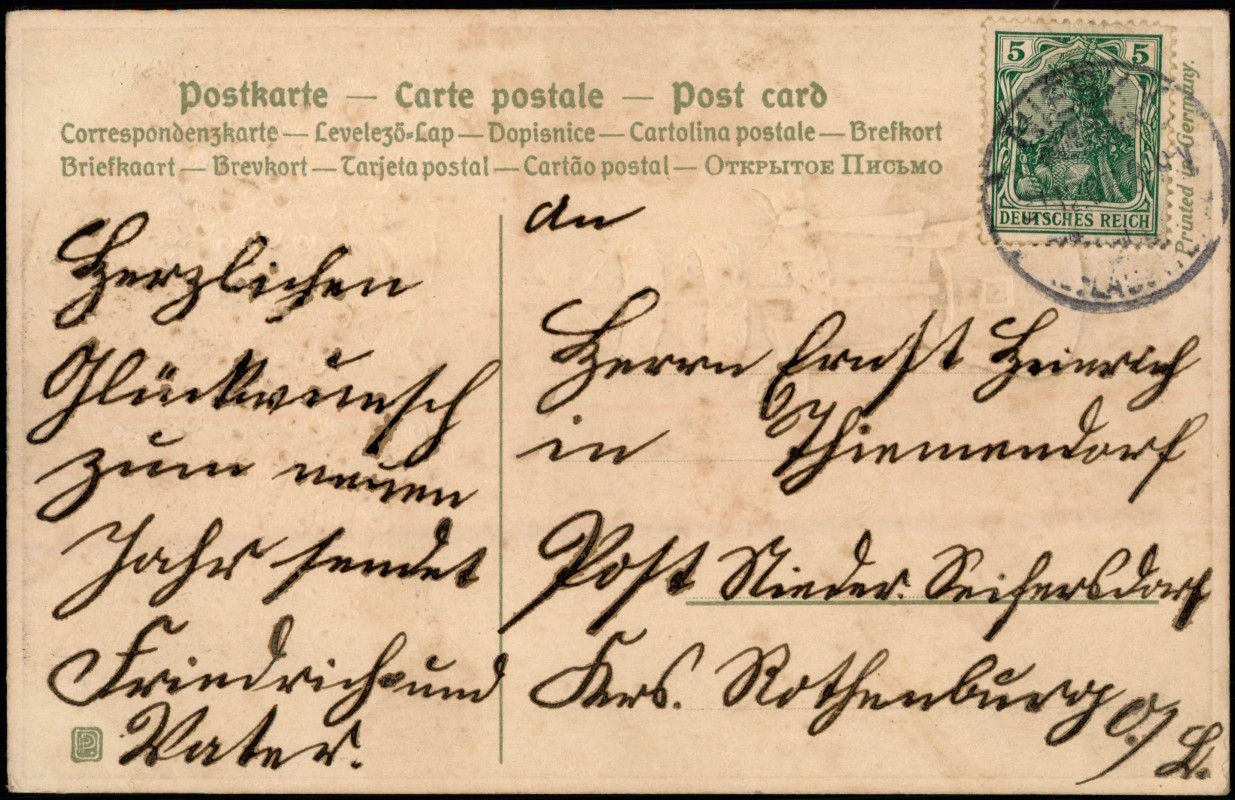 Postkarte — Carte postale — Post card
Correspondenzkarte — Levelező-Lap — Dopisnice — Cartolina postale — Brefkort
Briefkaart — Brevkort — Tarjeta postal — Cartão postal — Открытое Письмо
5 5
DEUTSCHES REICH
Printed in Germany.
Herzlichen
Glückwunsch
zum neuen
Jahr sendet
Friedrich und
Vater.
An
Herrn Ernst Heinrich
in Thiemendorf
Post Nieder. Seifersdorf
Krs. Rothenburg O/L.